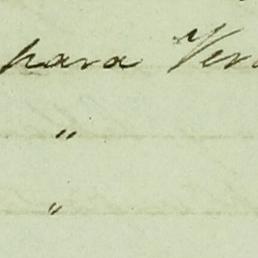 para Ver
"
"